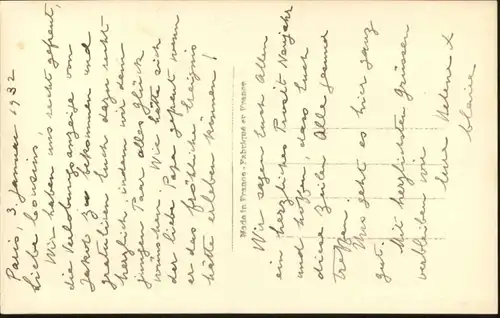 Paris, 3. Januar 1932
Liebe Cousins,
Wir haben uns recht gefreut,
die Verlobungsanzeige von
Jakob zu bekommen und
gratulieren Euch dazu recht
herzlich, indem wir dem
jungen Paar alles Glück
wünschen. Wie hätte sich
der liebe Papa gefreut wenn
er das fröhliche Ereignis
hätte erleben können!
Made in France - Fabriqué en France
Wir sagen Euch Allen
ein herzliches Prosit Neujahr
und hoffen, dass Euch
diese Zeilen Alle gesund
treffen.
Uns geht es hier ganz
gut.
Mit herzlichsten Grüssen
verbleiben wir
Eure Helene &
Claire